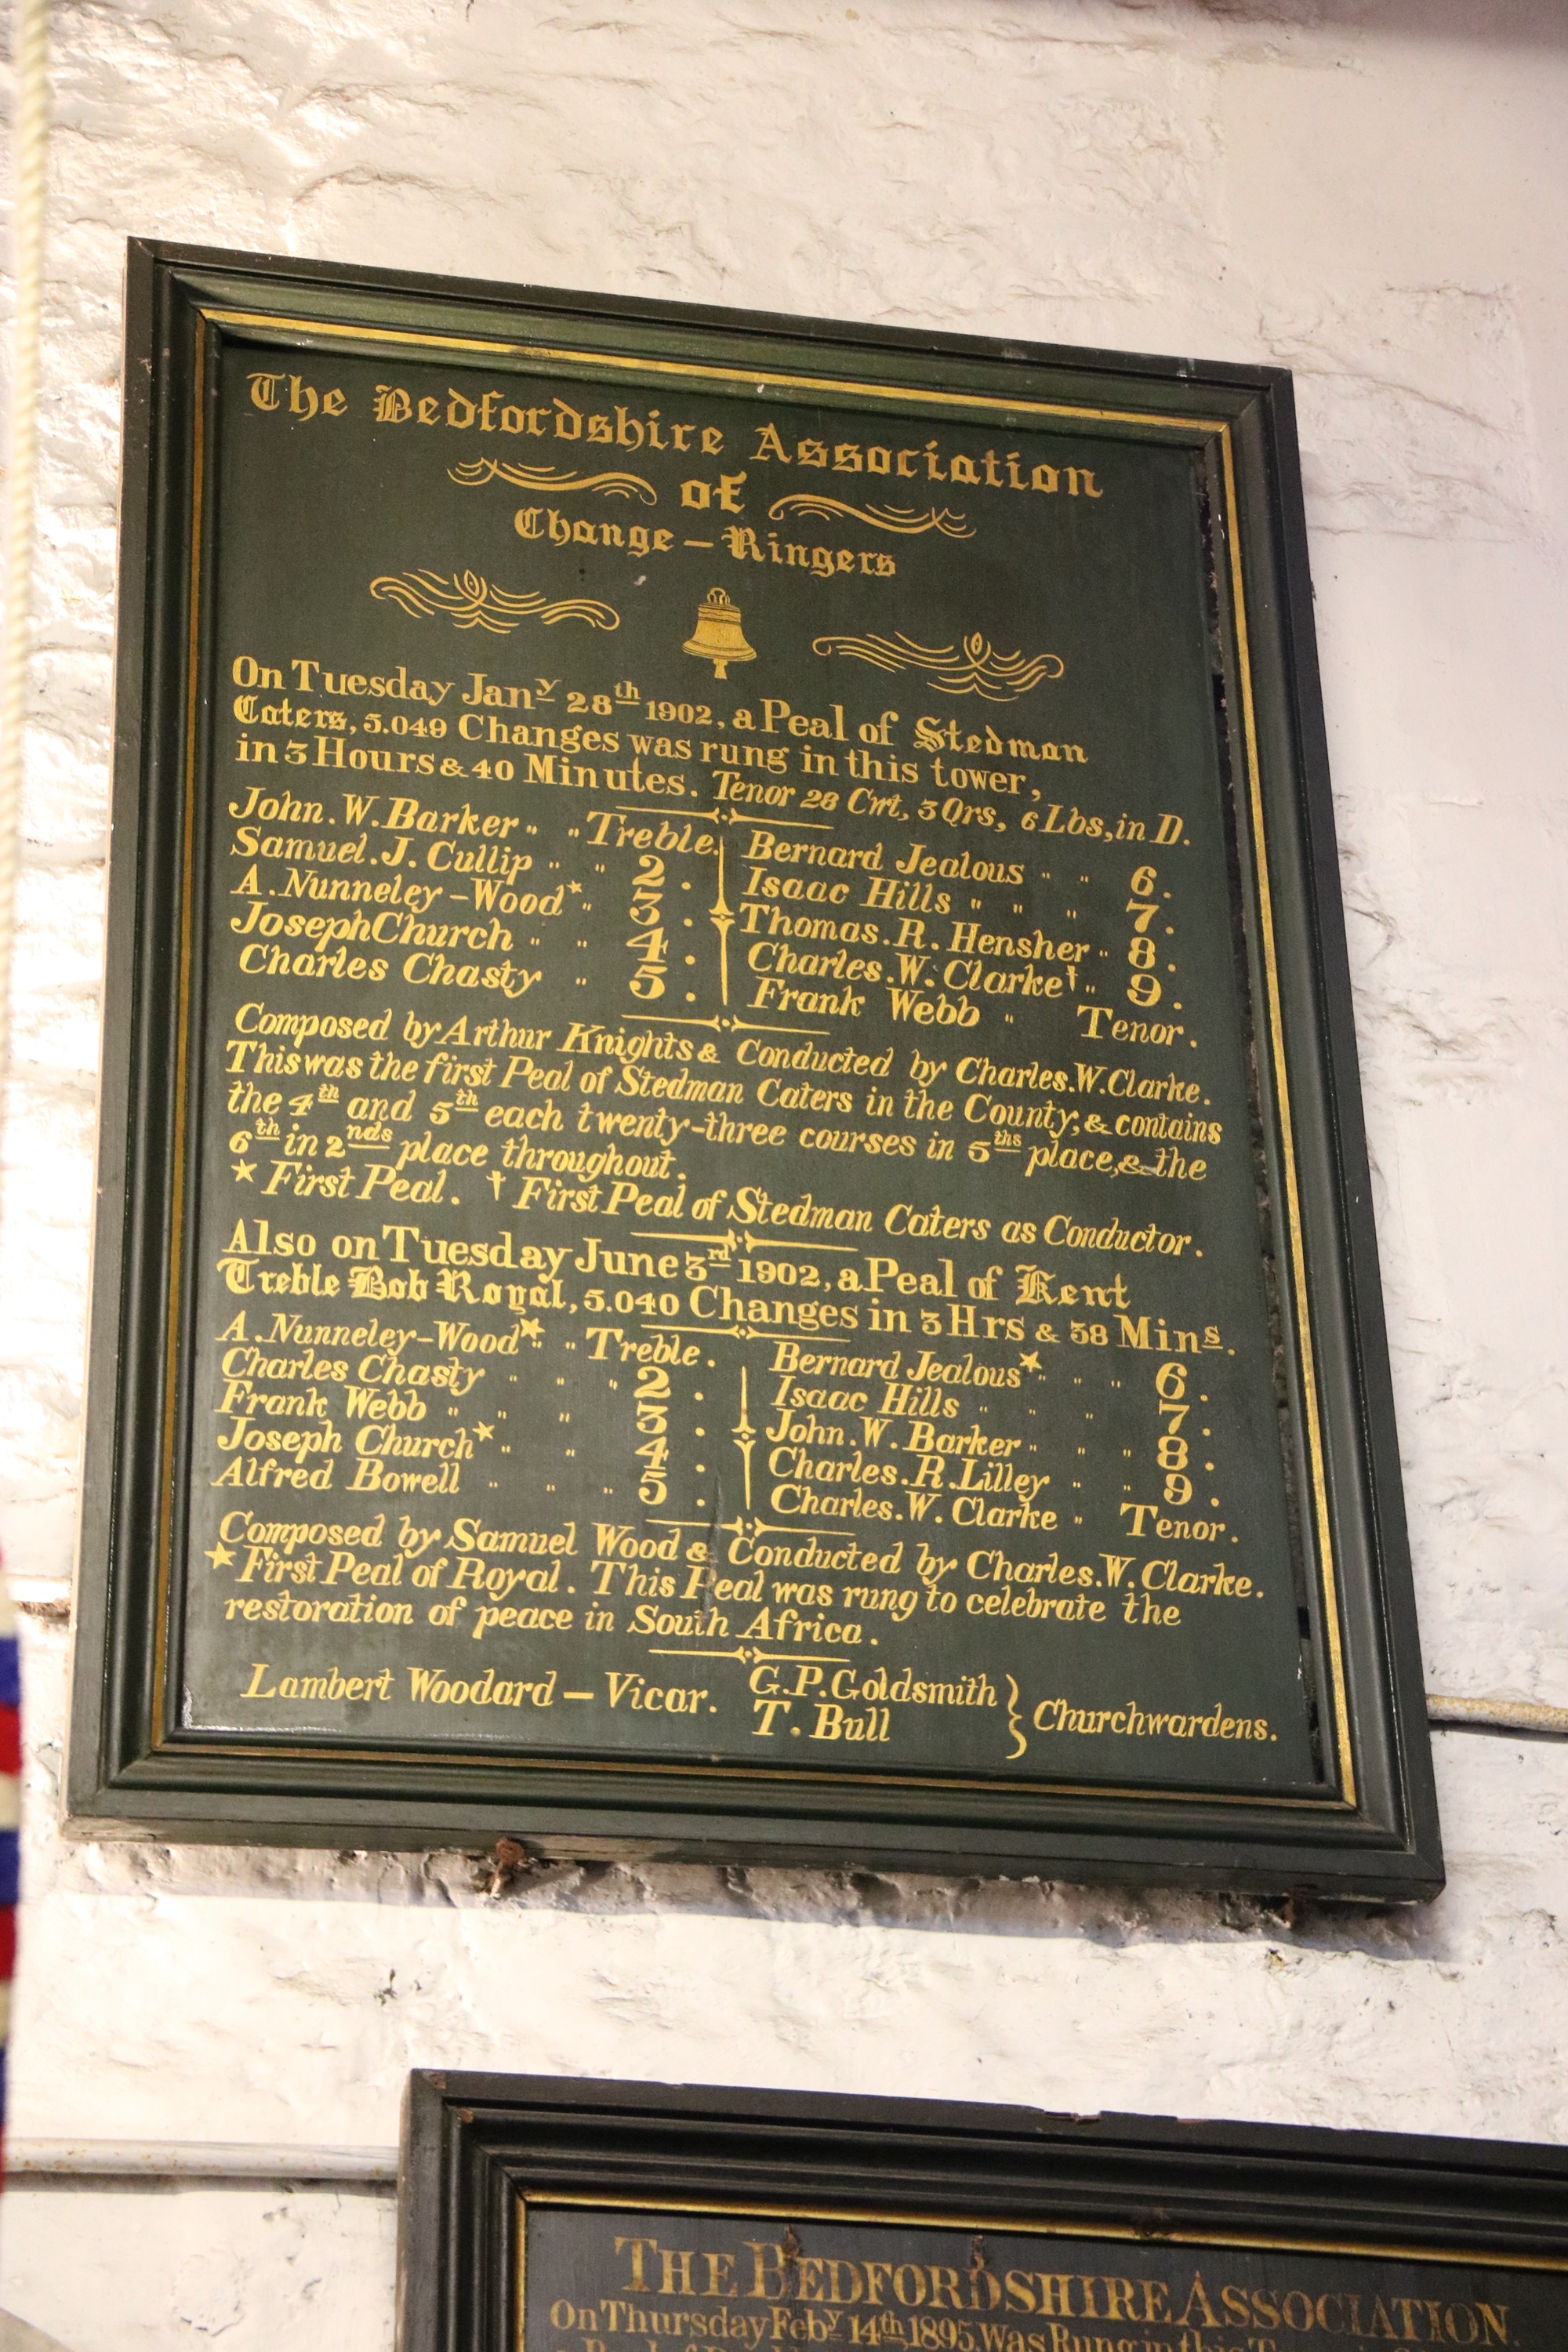 The Bedfordshire Association
of
Change - Ringers
On Tuesday Jany 28th 1902, a Peal of Stedman
Caters, 5.049 Changes was rung in this tower,
in 3 Hours & 40 Minutes. Tenor 28 Cwt, 3 Qrs, 6 Lbs, in D.
John. W. Barker " " Treble. Bernard Jealous " " 6.
Samuel. J. Cullip " " 2. Isaac Hills " " " 7.
A. Nunneley-Wood* " 3. Thomas. R. Hensher " 8.
Joseph Church " " 4. Charles. W. Clarke† " 9.
Charles Chasty " 5. Frank Webb " Tenor.
Composed by Arthur Knights & Conducted by Charles. W. Clarke.
This was the first Peal of Stedman Caters in the County, & contains
the 4th and 5th each twenty-three courses in 5ths place, & the
6th in 2nds place throughout.
* First Peal. † First Peal of Stedman Caters as Conductor.
Also on Tuesday June 3rd 1902, a Peal of Kent
Treble Bob Royal, 5.040 Changes in 3 Hrs & 38 Mins.
A. Nunneley-Wood* " " Treble. Bernard Jealous* " " " 6.
Charles Chasty " " " 2. Isaac Hills " " " 7.
Frank Webb " " " 3. John. W. Barker " " " 8.
Joseph Church* " " 4. Charles. R. Lilley " " 9.
Alfred Bowell " " " 5. Charles. W. Clarke " Tenor.
Composed by Samuel Wood & Conducted by Charles. W. Clarke.
* First Peal of Royal. This Peal was rung to celebrate the
restoration of peace in South Africa.
Lambert Woodard - Vicar. G. P. Goldsmith
T. Bull } Churchwardens.
THE BEDFORDSHIRE ASSOCIATION
On Thursday Feby 14th 1895, Was Rung in this